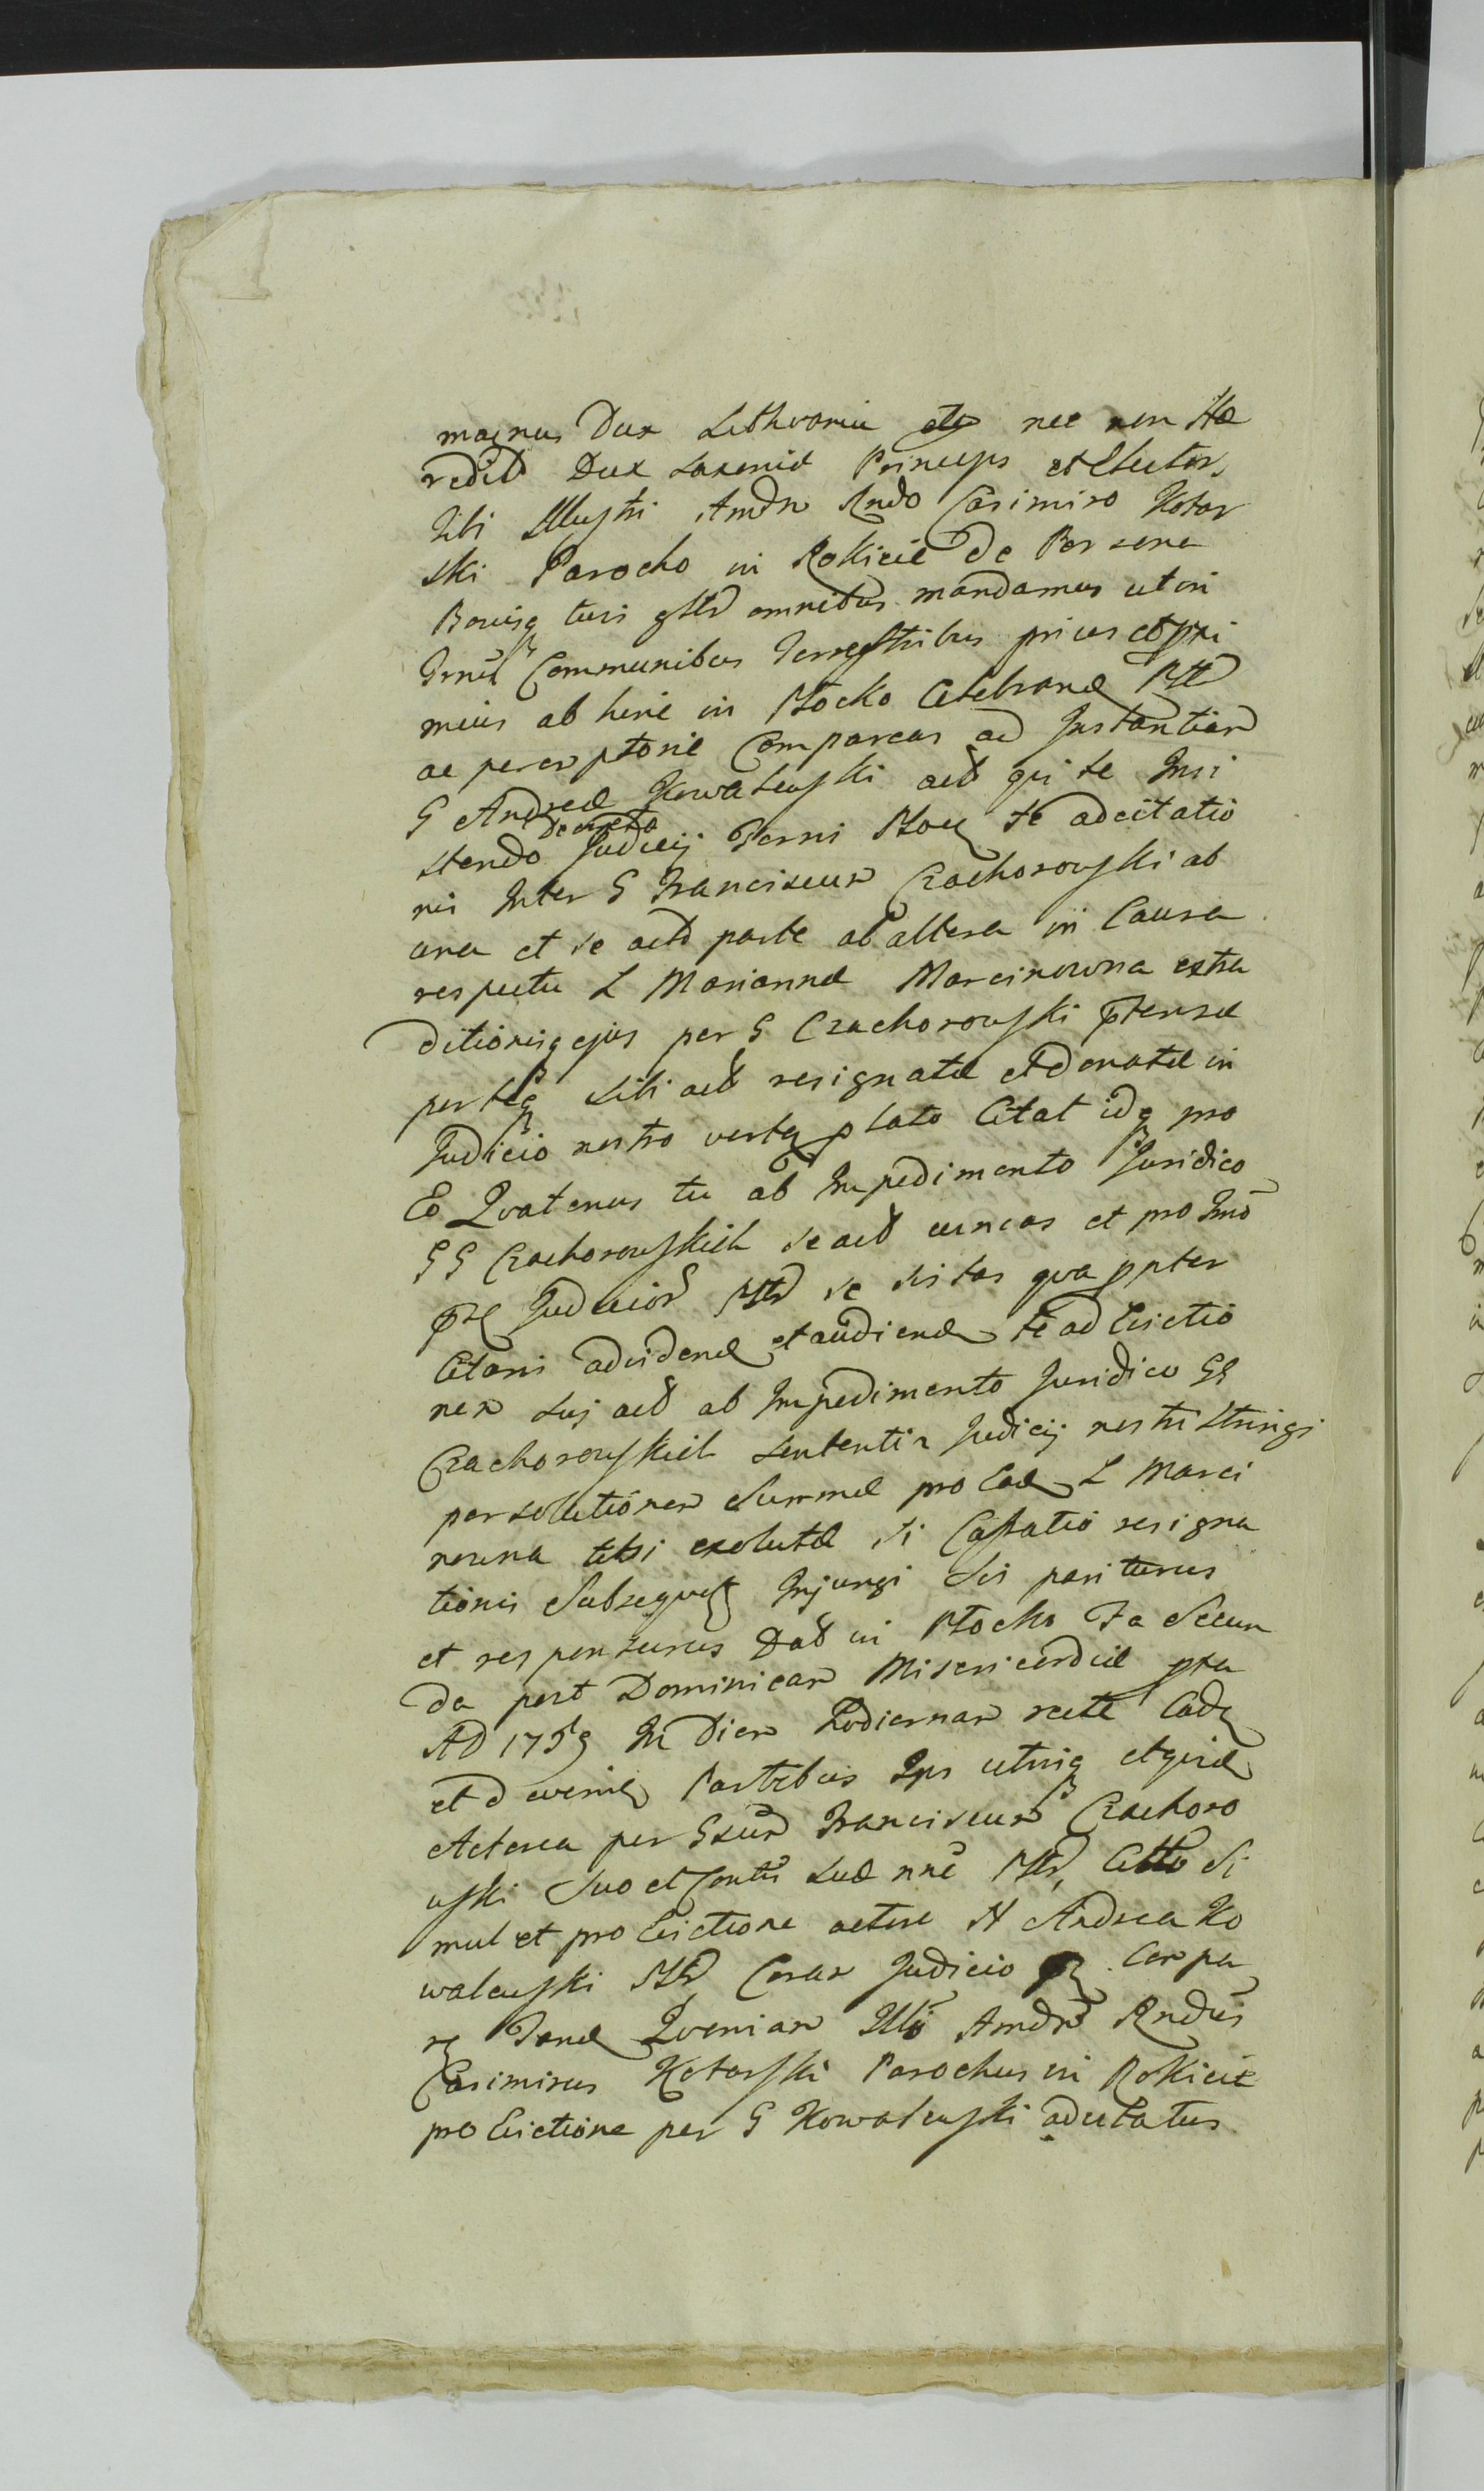 magnus Dux Lithvaniæ etc nec non Hæ
redit Dux Saxoniæ Princeps et Elector
Tibi Illustri Amdm Rndo Casimiro Kotar
ski Parocho in Rokicie De Persona
Bonisq tuis gltr omnibus mandamus ut in
Trnis Communibus Terrestribus prius et pri
mius ab hinc in Plocko Celebrand Pltr
ac peremptorie Compareas ad Instantiam
G Andreæ Kowalewski act qui te Insi
stendo Decreto Judicij Terris Ploc te adcitatio
nis Inter G Franciscum Czachorowski ab
una et se actr parte ab altera in Causa
respectu L Mariannæ Marcinowna extra
ditionisq ejus per G Czachorowski ptensæ
per teq sibi act resignatæ et donatæ in
Judicio nostro vert plato Citat idq pro
Eo Qvatenus tu ab Impedimento Juridico
GG Czachorowskich se act evincas et pro Trno
pti Judicior Pltr se sistas qva ppter
Citaris ad vidend et audiend te ad Evictio
nem sui act ab Impedimento Juridico GG
Czachorowskich sententia Judicij nostri stringi
persolutionem Summæ pro Ead L Marci
nowna tibi exolutæ si Cassatio resigna
tionis Subsequet Injungi Sis pariturus
et responsurus Dat in Plocko Fa Secun
da post Dominicam Misericordiæ pta
AD 1759 In Diem hodiernam recte Cad
et d eveniet Partibus Ips utrisq et qvid
Actorea per Gsum Franciscum Czachoro
wski Suo et Contis suæ nne Pltr, Citto Si
mul et pro Evictione actore N Andrea Ko
walewski Pltr Coram Judicio Compa
re Tand Qvoniam Illus Amdm Rndus
Casimirus Kotarski Parochus in Rokicie
pro Evictione per G Kowalewski adcitatus